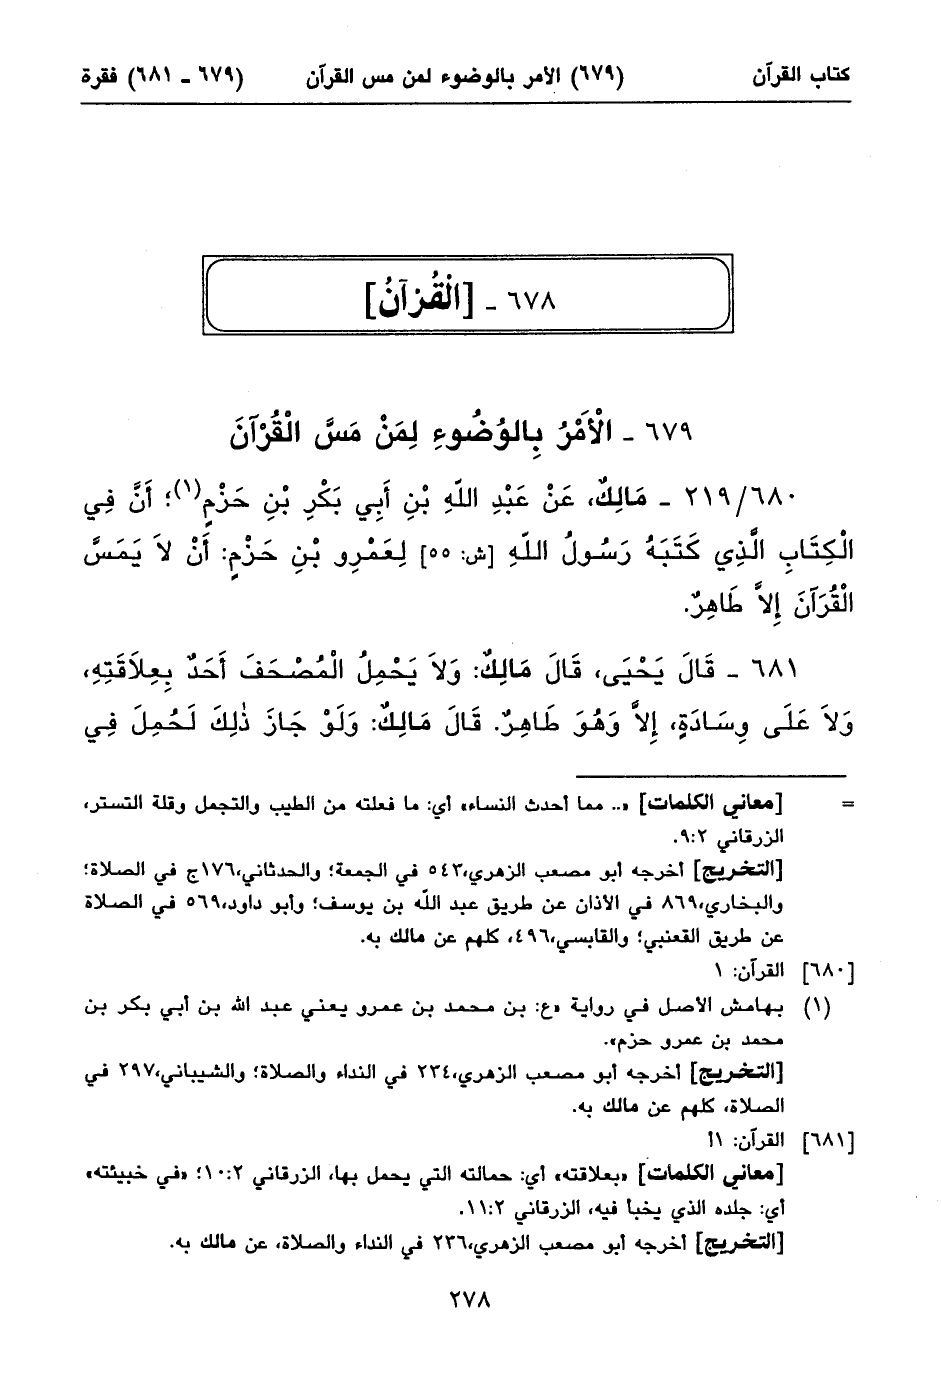 كتاب القرآن (٦٧٩) الأمر بالوضوء لمن مس القرآن (٦٧٩ - ٦٨١) فقرة
٦٧٨ - [الْقُرْآنُ]
٦٧٩ - الْأَمْرُ بِالوُضُوءِ لِمَنْ مَسَّ الْقُرْآنَ
٢١٩/٦٨٠ - مَالِكٌ، عَنْ عَبْدِ اللّهِ بْنِ أَبِي بَكْرِ بْنِ حَزْمٍ(١)؛ أَنَّ فِي
الْكِتَابِ الَّذِي كَتَبَهُ رَسُولُ اللّهِ [ش: ٥٥] لِعَمْرِو بْنِ حَزْمٍ: أَنْ لاَ يَمَسَّ
الْقُرَآنَ إِلاَّ طَاهِرٌ.
٦٨١ - قَالَ يَحْيَى، قَالَ مَالِكٌ: وَلاَ يَحْمِلُ الْمُصْحَفَ أَحَدٌ بِعِلاَقَتِهِ،
وَلاَ عَلَى وِسَادَةٍ، إِلاَّ وَهُوَ طَاهِرٌ. قَالَ مَالِكٌ: وَلَوْ جَازَ ذٰلِكَ لَحُمِلَ فِي
= [معاني الكلمات] «.. مما أحدث النساء» أي: ما فعلته من الطيب والتجمل وقلة التستر،
الزرقاني ٩:٢.
[التخريج] أخرجه أبو مصعب الزهري،٥٤٣ في الجمعة؛ والحدثاني،١٧٦ج في الصلاة؛
والبخاري،٨٦٩ في الأذان عن طريق عبد اللّه بن يوسف؛ وأبو داود،٥٦٩ في الصلاة
عن طريق القعنبي؛ والقابسي،٤٩٦، كلهم عن مالك به.
[٦٨٠] القرآن: ١
(١) بهامش الأصل في رواية «ع: بن محمد بن عمرو يعني عبد الله بن أبي بكر بن
محمد بن عمرو حزم».
[التخريج] أخرجه أبو مصعب الزهري،٢٣٤ في النداء والصلاة؛ والشيباني،٢٩٧ في
الصلاة، كلهم عن مالك به.
[٦٨١] القرآن: ١أ
[معاني الكلمات] «بعلاقته» أي: حمالته التي يحمل بها، الزرقاني ١٠:٢؛ «في خبيئته»
أي: جلده الذي يخبأ فيه، الزرقاني ١١:٢.
[التخريج] أخرجه أبو مصعب الزهري،٢٣٦ في النداء والصلاة، عن مالك به.
٢٧٨